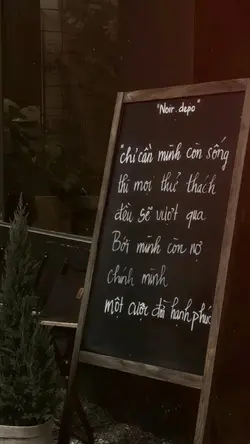 "Noir. depo"
"chỉ cần mình còn sống
thì mọi thử thách
đều sẽ vượt qua
Bởi mình còn nợ
chính mình
một cuộc đời hạnh phúc